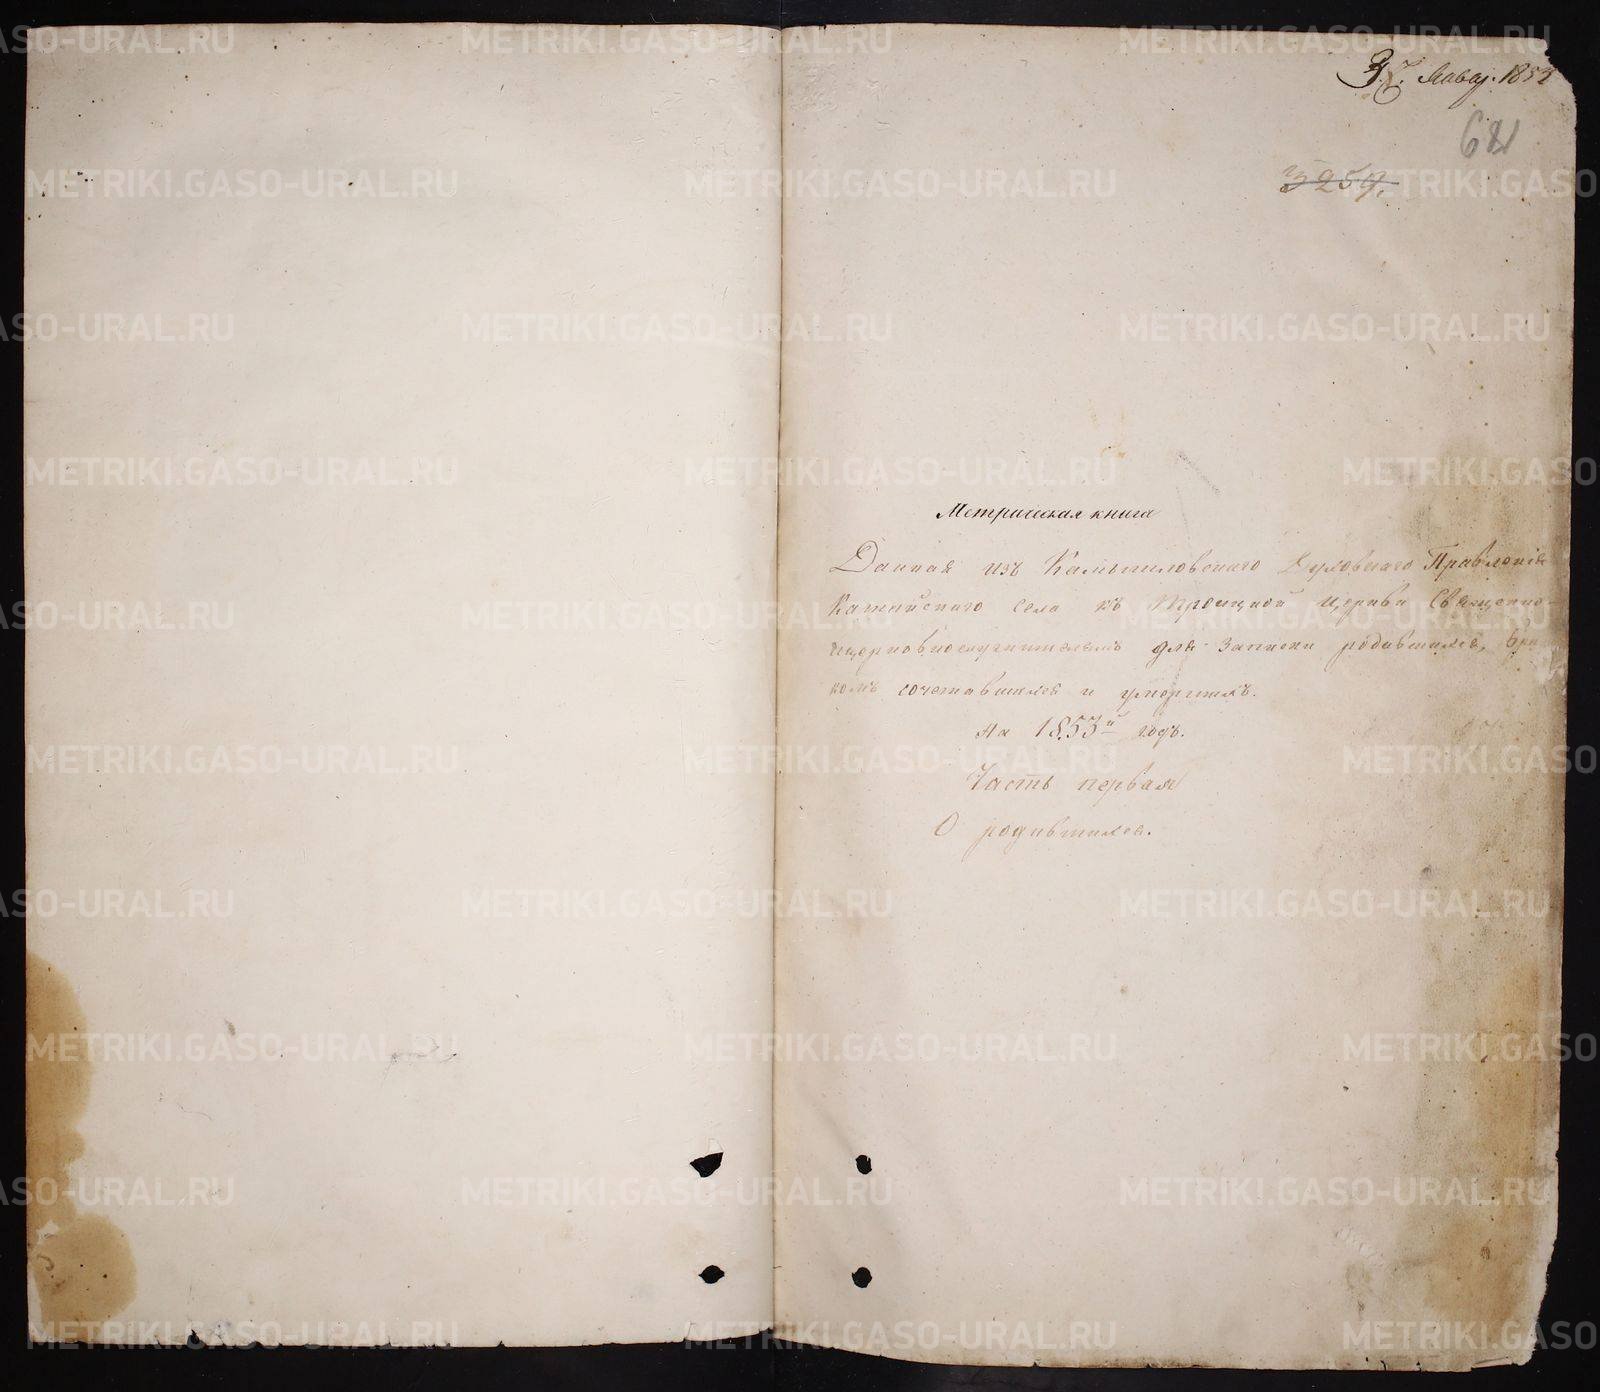 Январ. 1853
681
3259.
Метрическая книга
Данная изъ Камышловскаго Духовнаго Правленія
Катайскаго села къ Троицкой Церкви Священно-
церковнослужителямъ для записки родившихся, бра-
комъ сочетавшихся и умершихъ.
На 1853й годъ.
Часть первая
О родившихся.
METRIKI.GASO-URAL.RU